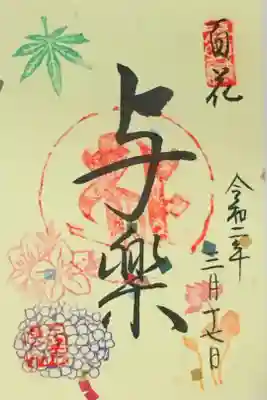 百花
令和二年
三月十七日
与楽